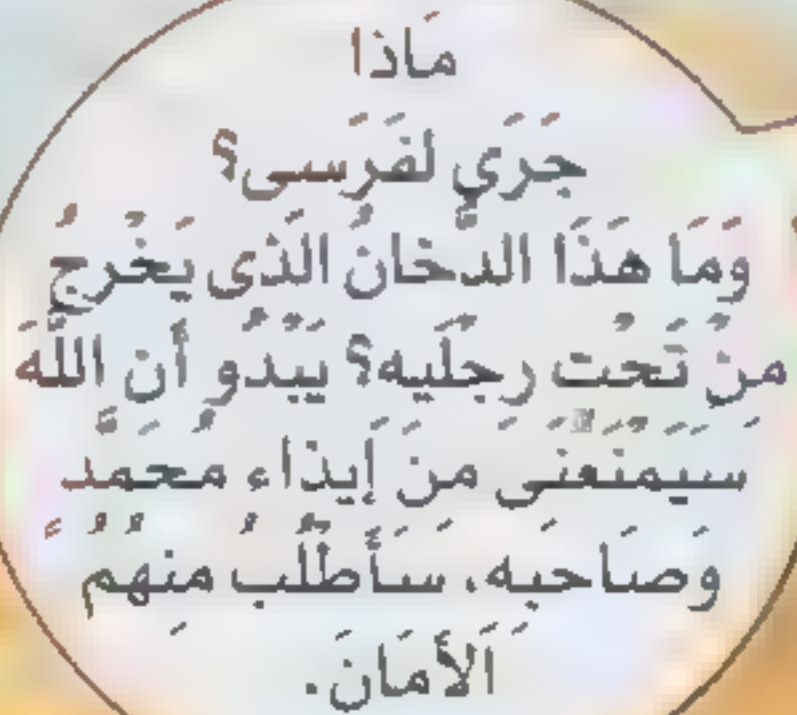 مَاذا
جَرَي لفَرَسى؟
وَمَا هَذَا الدُّخانُ الَذى يَخْرجُ
مِنْ تَحْت رِجلَيه؟ يَبْدُو أَن اللَّهَ
سَيَمْنَعُنَى منَ إيذَاء مُحَمَّد
وَصَاحبِه، سَأَطْلُبُ مِنْهُمُ
اَلأمَانَ.